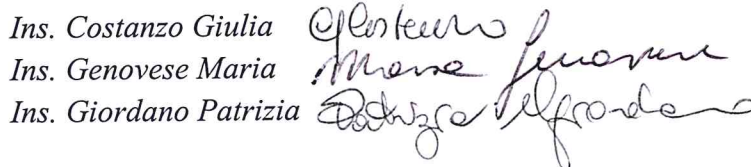 Ins. Costanzo Giulia GCostanzo
Ins. Genovese Maria Maria Genovese
Ins. Giordano Patrizia Patrizia Giordano